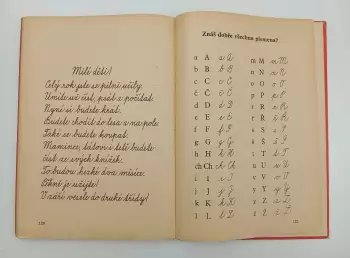 Milé děti!
Celý rok jste se pilně učily.
Umíte už číst, psát a počítat.
Nyní si budete hrát.
Budete chodit do lesa a na pole.
Také se budete koupat.
Mamince, tátovi a budete
číst ze svých knížek.
To budou hezké dva měsíce.
Pěkně je užijte!
V září vesele do druhé třídy!
Znáš dobře všechna písmena?
a A a A m M m M
b B b B n N n N
c C c C o O o O
č Č č Č p P p P
d D d D r R r R
e E e E ř Ř ř Ř
f F f F s S s S
g G g G š Š š Š
h H h H t T t T
ch Ch ch Ch u U u U
i I i I v V v V
j J j J y Y y Y
k K k K z Z z Z
l L l L ž Ž ž Ž